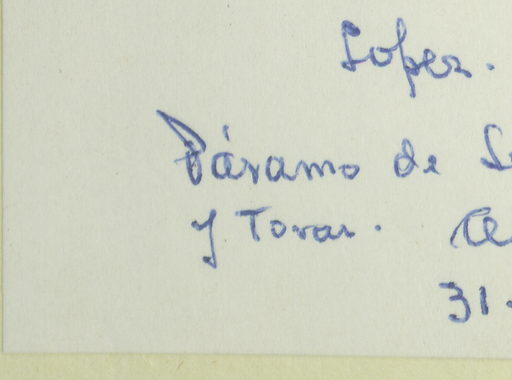 Lopez.
Páramo de
y Tovar.
31.